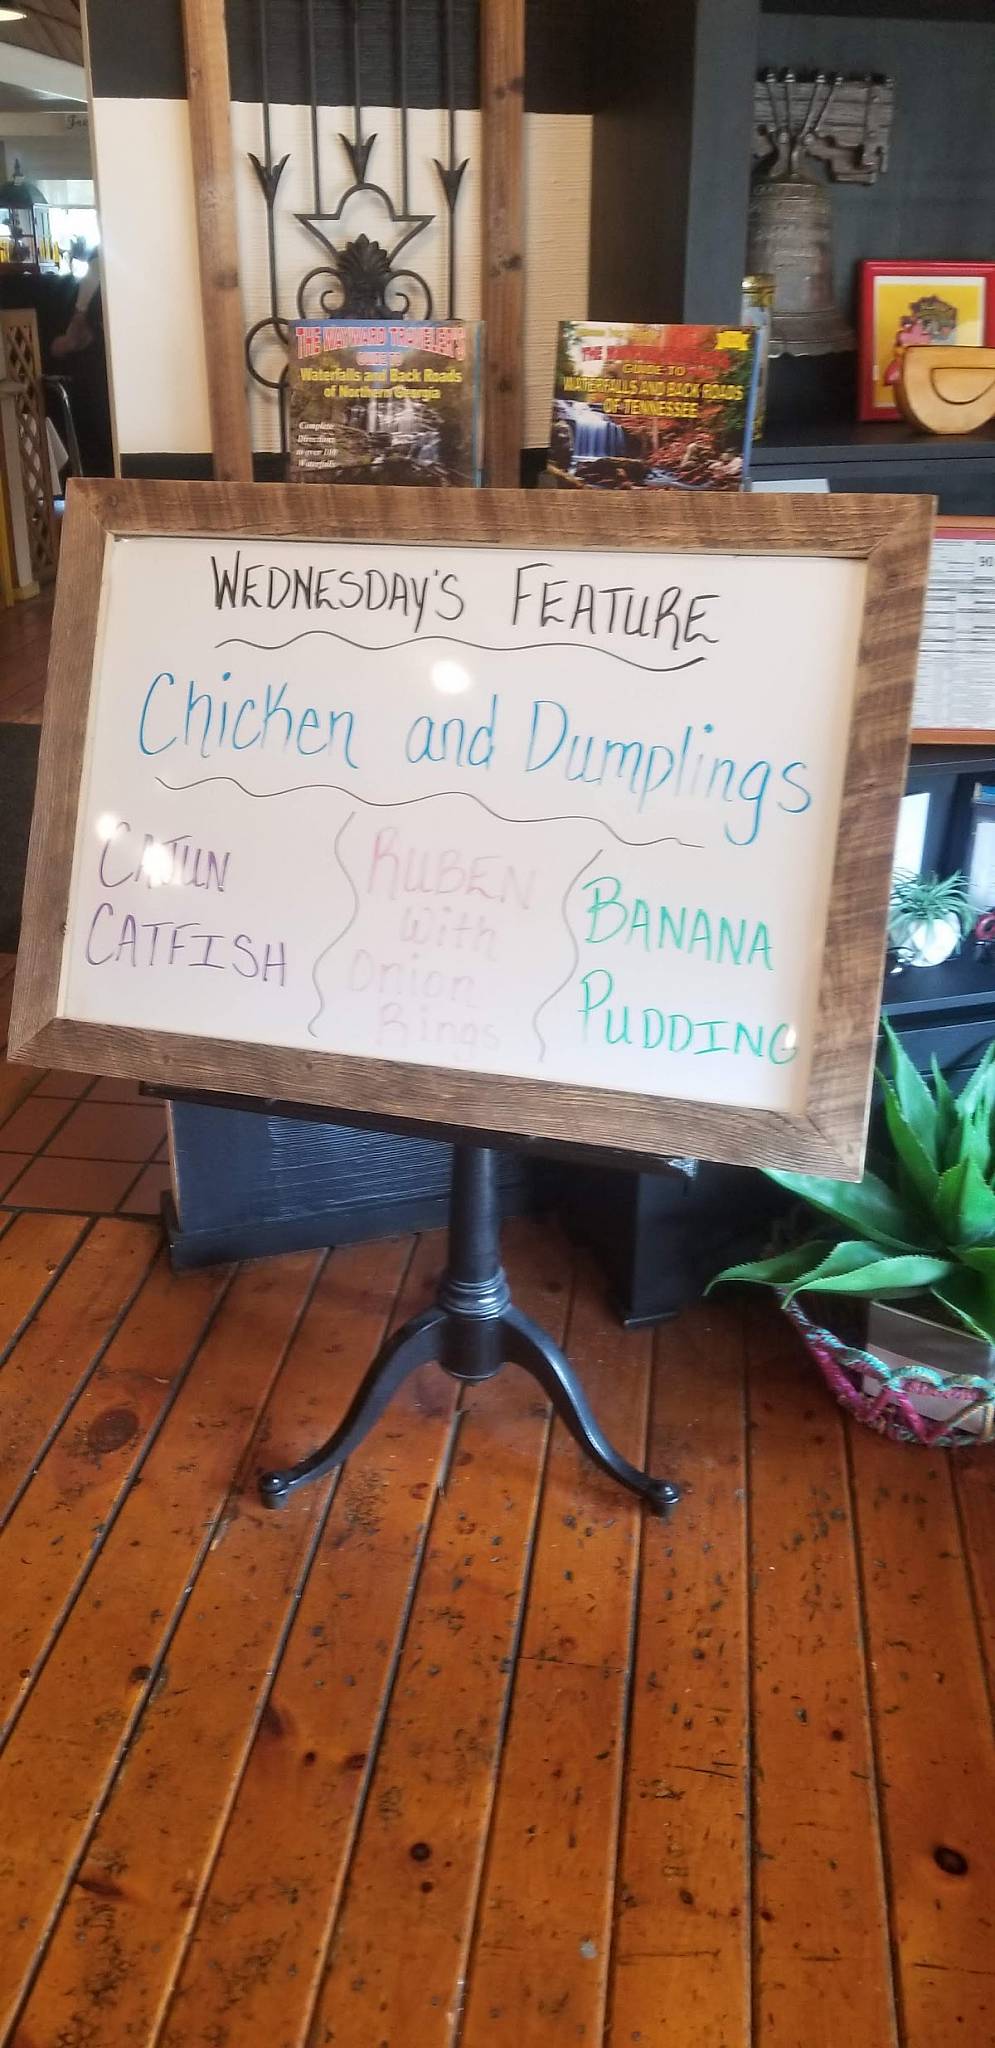 THE WAYWARD TRAVELER'S
GUIDE TO
Waterfalls and Back Roads
of Northern Georgia
Complete
Directions
to over 110
Waterfalls
THE
GUIDE TO
WATERFALLS AND BACK ROADS
OF TENNESSEE
WEDNESDAY'S FEATURE
Chicken and Dumplings
CAJUN
CATFISH
RUBEN
With
Onion
Rings
BANANA
PUDDING
90